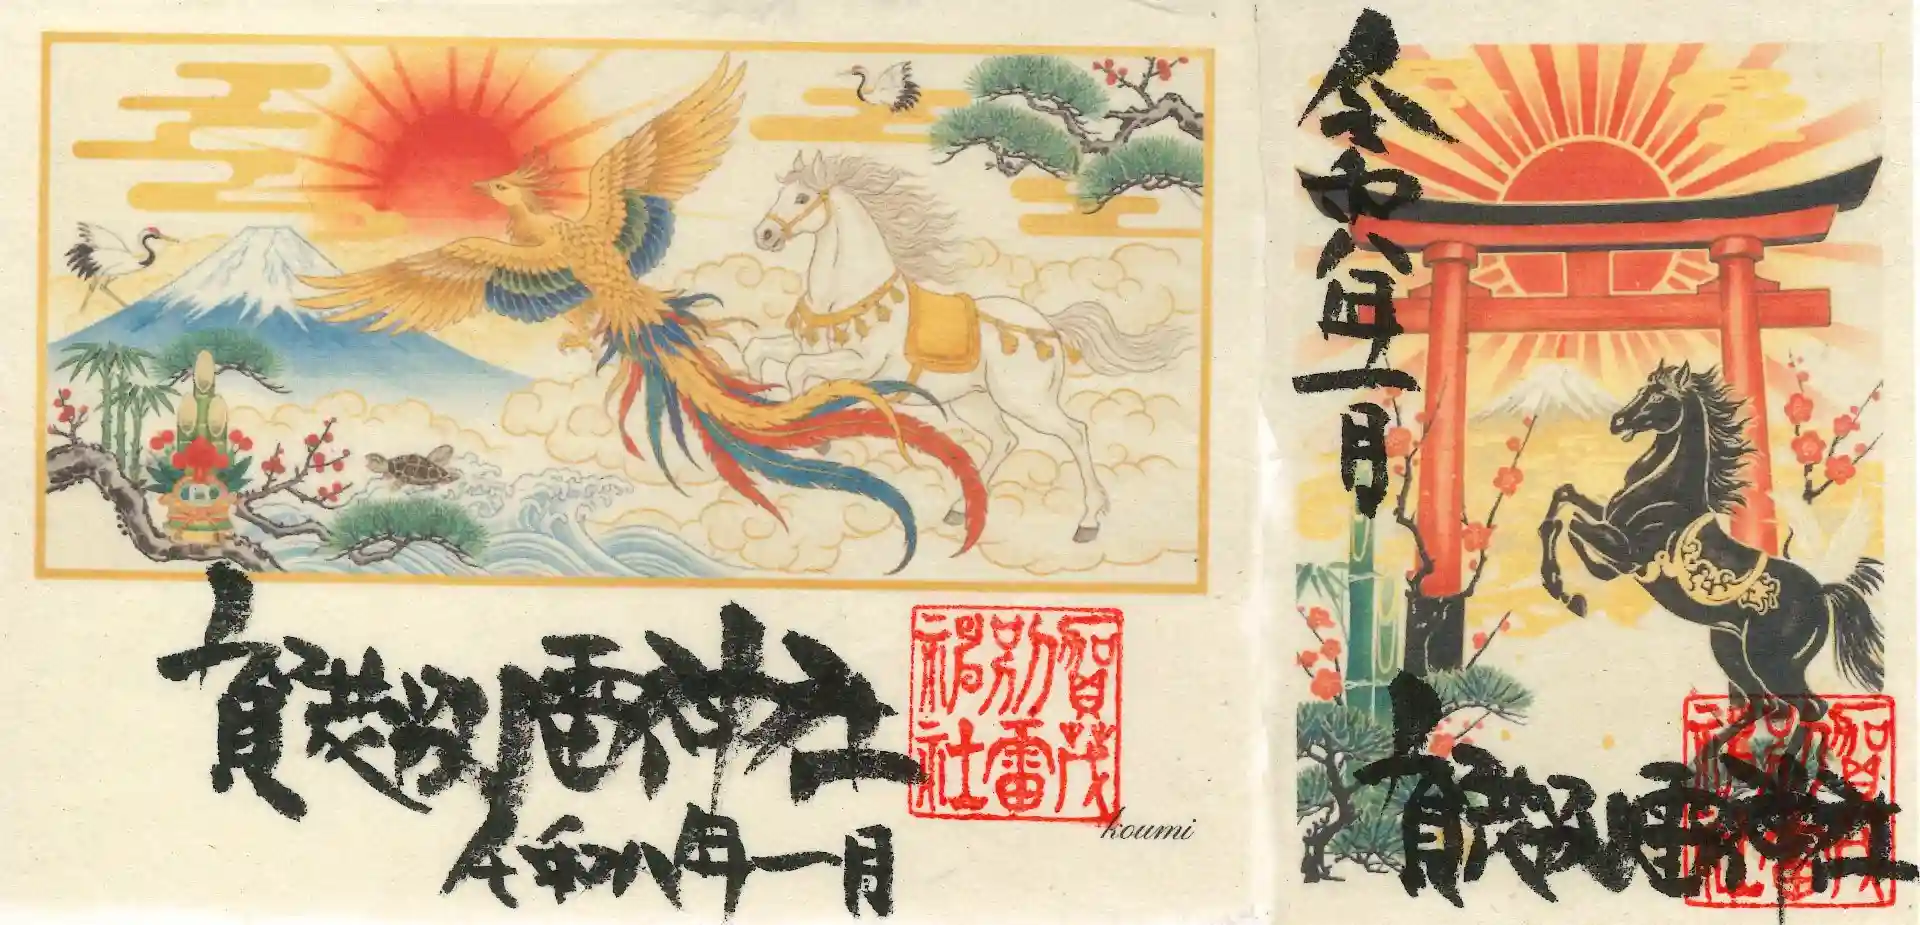 賀茂別雷神社
令和八年一月
賀茂
別雷
神社
koumi
令和八年一月
賀茂別雷神社
賀茂
別雷
神社